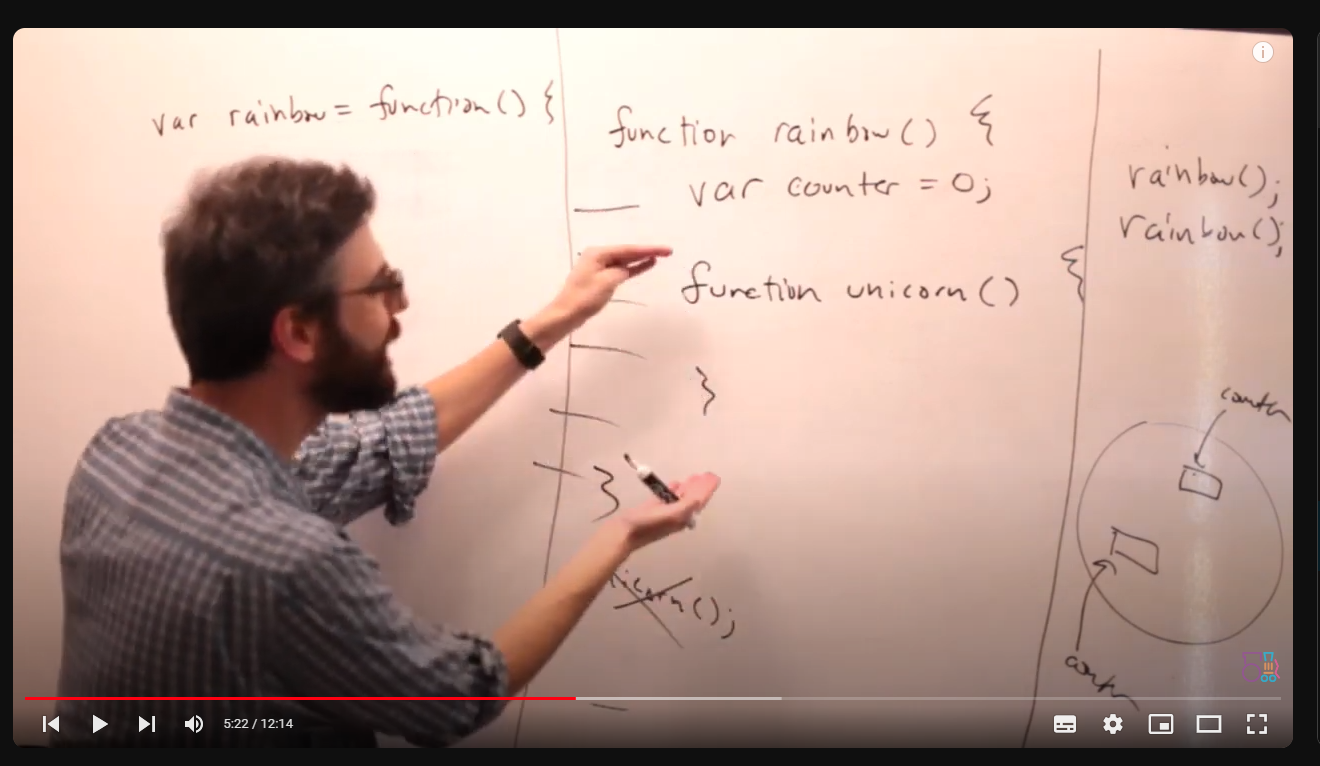 var rainbow = function() {
function rainbow() {
var counter = 0;
function unicorn() {
}
}
();
rainbow();
rainbow();
counter
counter
5:22 / 12:14